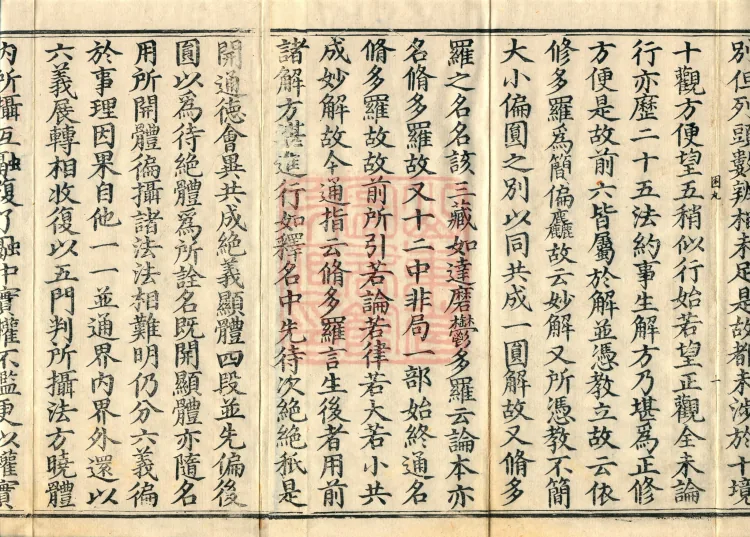 別但列頭數辨相未足是故都未涉於十境
十觀方便望五稍似行始若望正觀全未論
行亦歷二十五法約事生解方乃堪為正修
方便是故前六皆屬於解並憑教立故云依
修多羅為簡偏麤故云妙解又所憑教不簡
大小偏圓之別以同共成一圓解故又脩多
羅之名名該三藏如達磨鬱多羅云論本亦
名脩多羅故又十二中非局一部始終通名
脩多羅故故前所引若論若律若大若小共
成妙解故今通指云脩多羅言生後者用前
諸解方堪進行如釋名中先待次絶絶秖是
開通德會異共成絶義顯體四段並先偏後
圓以爲待絶體爲所詮名既開顯體亦隨名
用所開體徧攝諸法法相難明仍分六義徧
於事理因果自他一一並通界內界外還以
六義展轉相收復以五門判所攝法方曉體
內所攝互融復了融中實權不濫更以權實